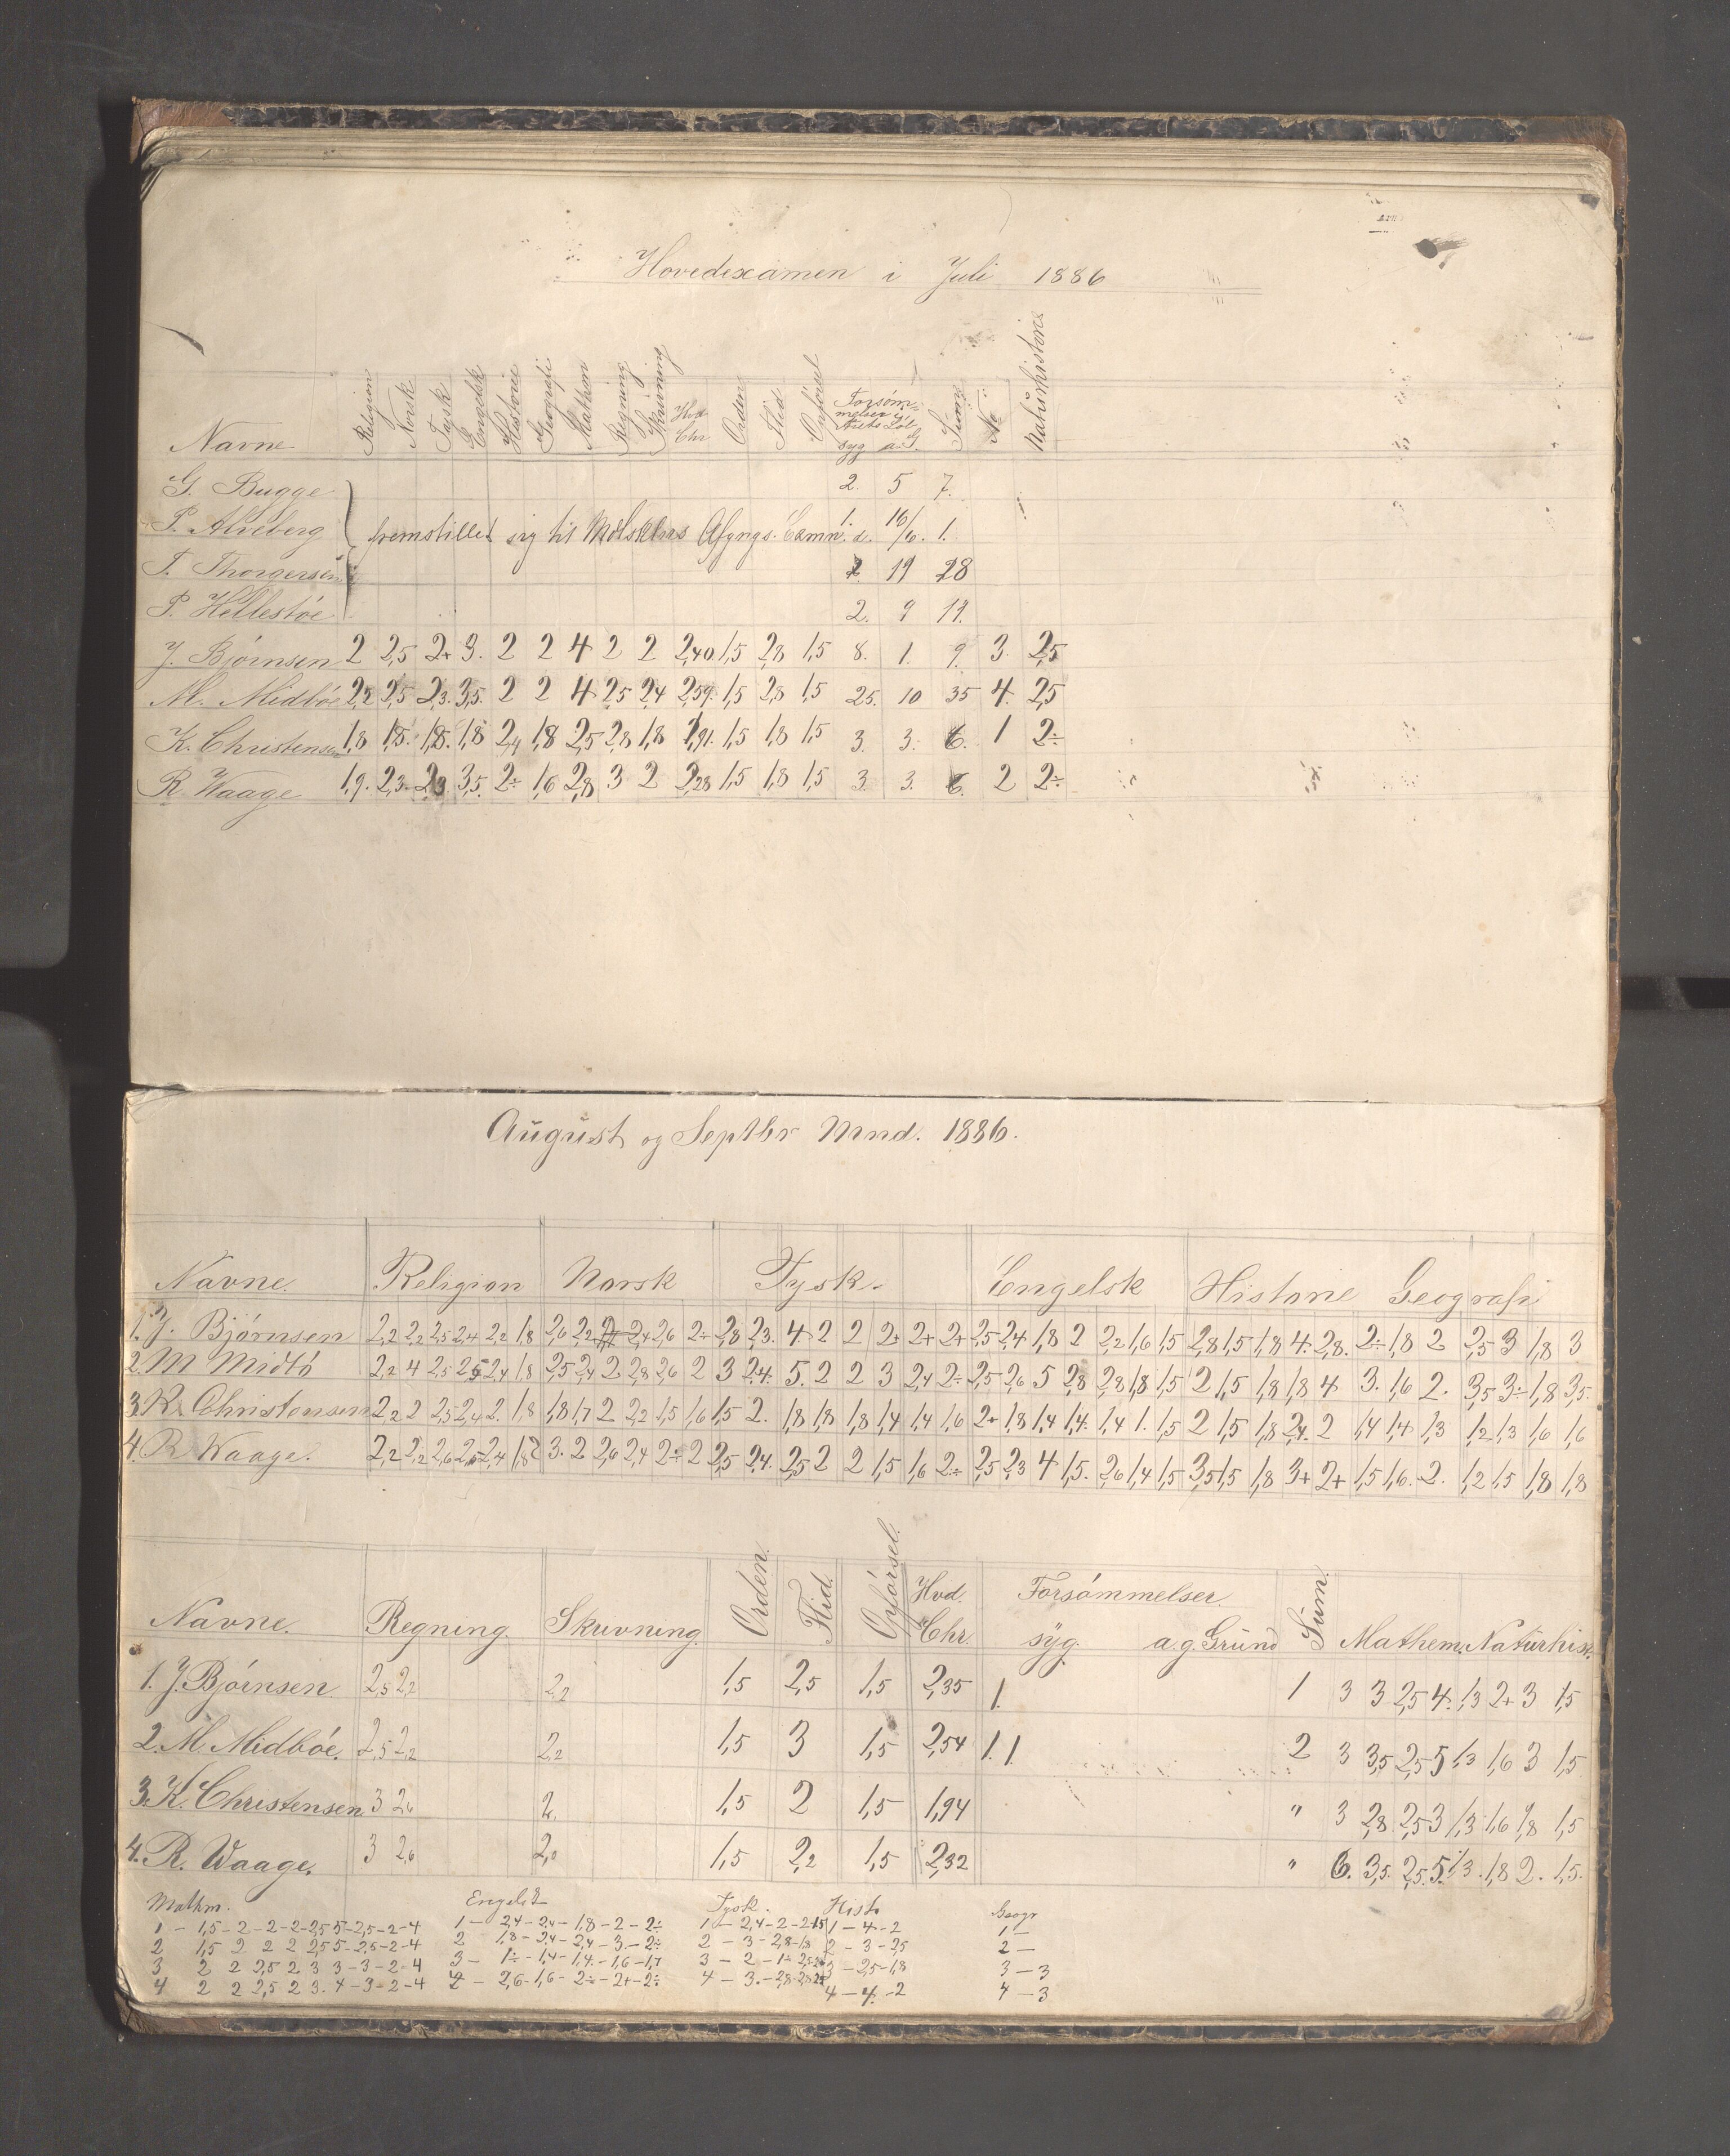 Hovedexamen i Juli 1886
Navne Religion Norsk Tysk Engelsk Historie Geografi Mathem Regning Skrivning Hvd Chr Orden Flid Opførsel Forsømmelser syg a. G. Summa No Naturhistorie
G. Bugge 2. 5 7.
P. Alveberg fremstillet sig til 1. 16/6. 1.
T. Thorgersen 19 28
P. Hellestøe 2. 9 11.
J. Bjørnsen 2 2,5 2+ 3. 2 2 4 2 2 2,40 1,5 2,8 1,5 8. 1. 9. 3. 2,5
M. Midbøe 2,2 2,5 2,3. 3,5. 2 2 4 2,5 2,4 2,59. 1,5 2,8 1,5 25. 10 35 4. 2,5
K. Christensen 1,8 1,8. 1,8. 1,8 2,4 1,8 2,5 2,8 1,8 1,91. 1,5 1,8 1,5 3. 3. 6. 1 2÷
R. Waage 1,9. 2,3. 2,3. 3,5. 2÷ 1,6 2,8 3 2 2,28 1,5 1,8 1,5 3. 3. 6. 2 2÷
August og Septbr Mnd. 1886.
Navne. Religion Norsk Tysk. Engelsk Historie Geografi
1. J. Bjørnsen 2,2 2,2 2,5 2,4 2,2 1,8 2,6 2,2 2,4 2,6 2÷ 2,8 2,3. 4 2 2 2+ 2+ 2+ 2,5 2,4 1,8 2 2,2 1,6 1,5 2,8 1,5 1,8 4. 2,8. 2÷ 1,8 2 2,5 3 1,8 3
2. M Midtö 2,2 4 2,5 2,5 2,4 1,8 2,5 2,4 2 2,8 2,6 2 3 2,4. 5. 2 2 3 2,4 2÷ 2,5 2,6 5 2,8 2,8 1,8 1,5 2 1,5 1,8 1,8 4 3. 1,6 2. 3,5 3÷ 1,8 3,5.
3. K. Christensen 2,2 2 2,5 2,4 2. 1,8 1,8 1,7 2 2,2 1,5 1,6 1,5 2. 1,8 1,8 1,8 1,4 1,4 1,6 2+ 1,8 1,4 1,4. 1,4 1. 1,5 2 1,5 1,8 2,4. 2 1,4 1,4 1,3 1,2 1,3 1,6 1,6
4. R Waage. 2,2 2,2 2,6 2,5 2,4 1,8 3. 2 2,6 2,4 2÷ 2 2,5 2,4. 2,5 2 2 1,5 1,6 2÷ 2,5 2,3 4 1,5. 2,6 1,4 1,5 3,5 1,5 1,8 3+ 2+ 1,5 1,6. 2. 1,2 1,5 1,8 1,8
Navne. Regning. Skrivning. Orden. Flid. Opførsel. Hvd. Chr. Forsømmelser. syg. a.g. Grund Sum. Mathem. Naturhist.
1. J. Bjørnsen 2,5 2,2 2,2 1,5 2,5 1,5 2,35 1. 1 3 3 2,5 4. 1,3 2+ 3 1,5
2. M. Midbøe. 2,5 2,2 2,2 1,5 3 1,5 2,54 1. 1 2 3 3,5 2,5 5 1,3 1,6 3 1,5
3. K. Christensen 3 2,6 2. 1,5 2 1,5 1,94 " 3 2,8 2,5 3 1,3 1,6 1,8 1,5
4. R. Waage. 3 2,6 2,0 1,5 2,2 1,5 2,32 " 6. 3,5. 2,5. 5. 1,3. 1,8 2. 1,5.
Mathm. Engelsk Tysk. Hist. Geogr
1 - 1,5 - 2 - 2 - 2 - 2,5 5 - 2,5 - 2 - 4 1 - 2,4 - 2,4 - 1,8 - 2 - 2÷ 1 - 2,4 - 2 - 2 1,5 1 - 4 - 2 1 -
2 1,5 2 2 2 2,5 5 - 2,5 - 2 - 4 2 1,8 - 2,4 - 2,4 - 3 - 2÷ 2 - 3 - 2,8 - 1,8 2 - 3 - 2,5 2 -
3 2 2 2,5 2 3 3 - 3 - 2 - 4 3 - 1÷ - 1,4 - 1,4 - 1,6 - 1,7 3 - 2 - 1÷ 3 - 2,5 - 1,8 3 - 3
4 2 2 2,5 2 3. 4 - 3 - 2 - 4 4 - 2,6 - 1,6 - 2÷ - 2+ - 2÷ 4 - 3. - 2,8 - 4 - 4. - 2 4 - 3